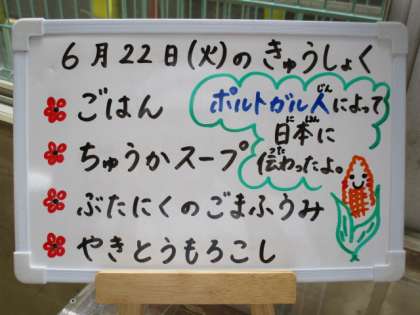 6月22日(火)のきゅうしょく
ごはん
ポルトガル人によって
じん
日本に
に ほん
伝わったよ。
つた
ちゅうかスープ
ぶたにくのごまふうみ
やきとうもろこし